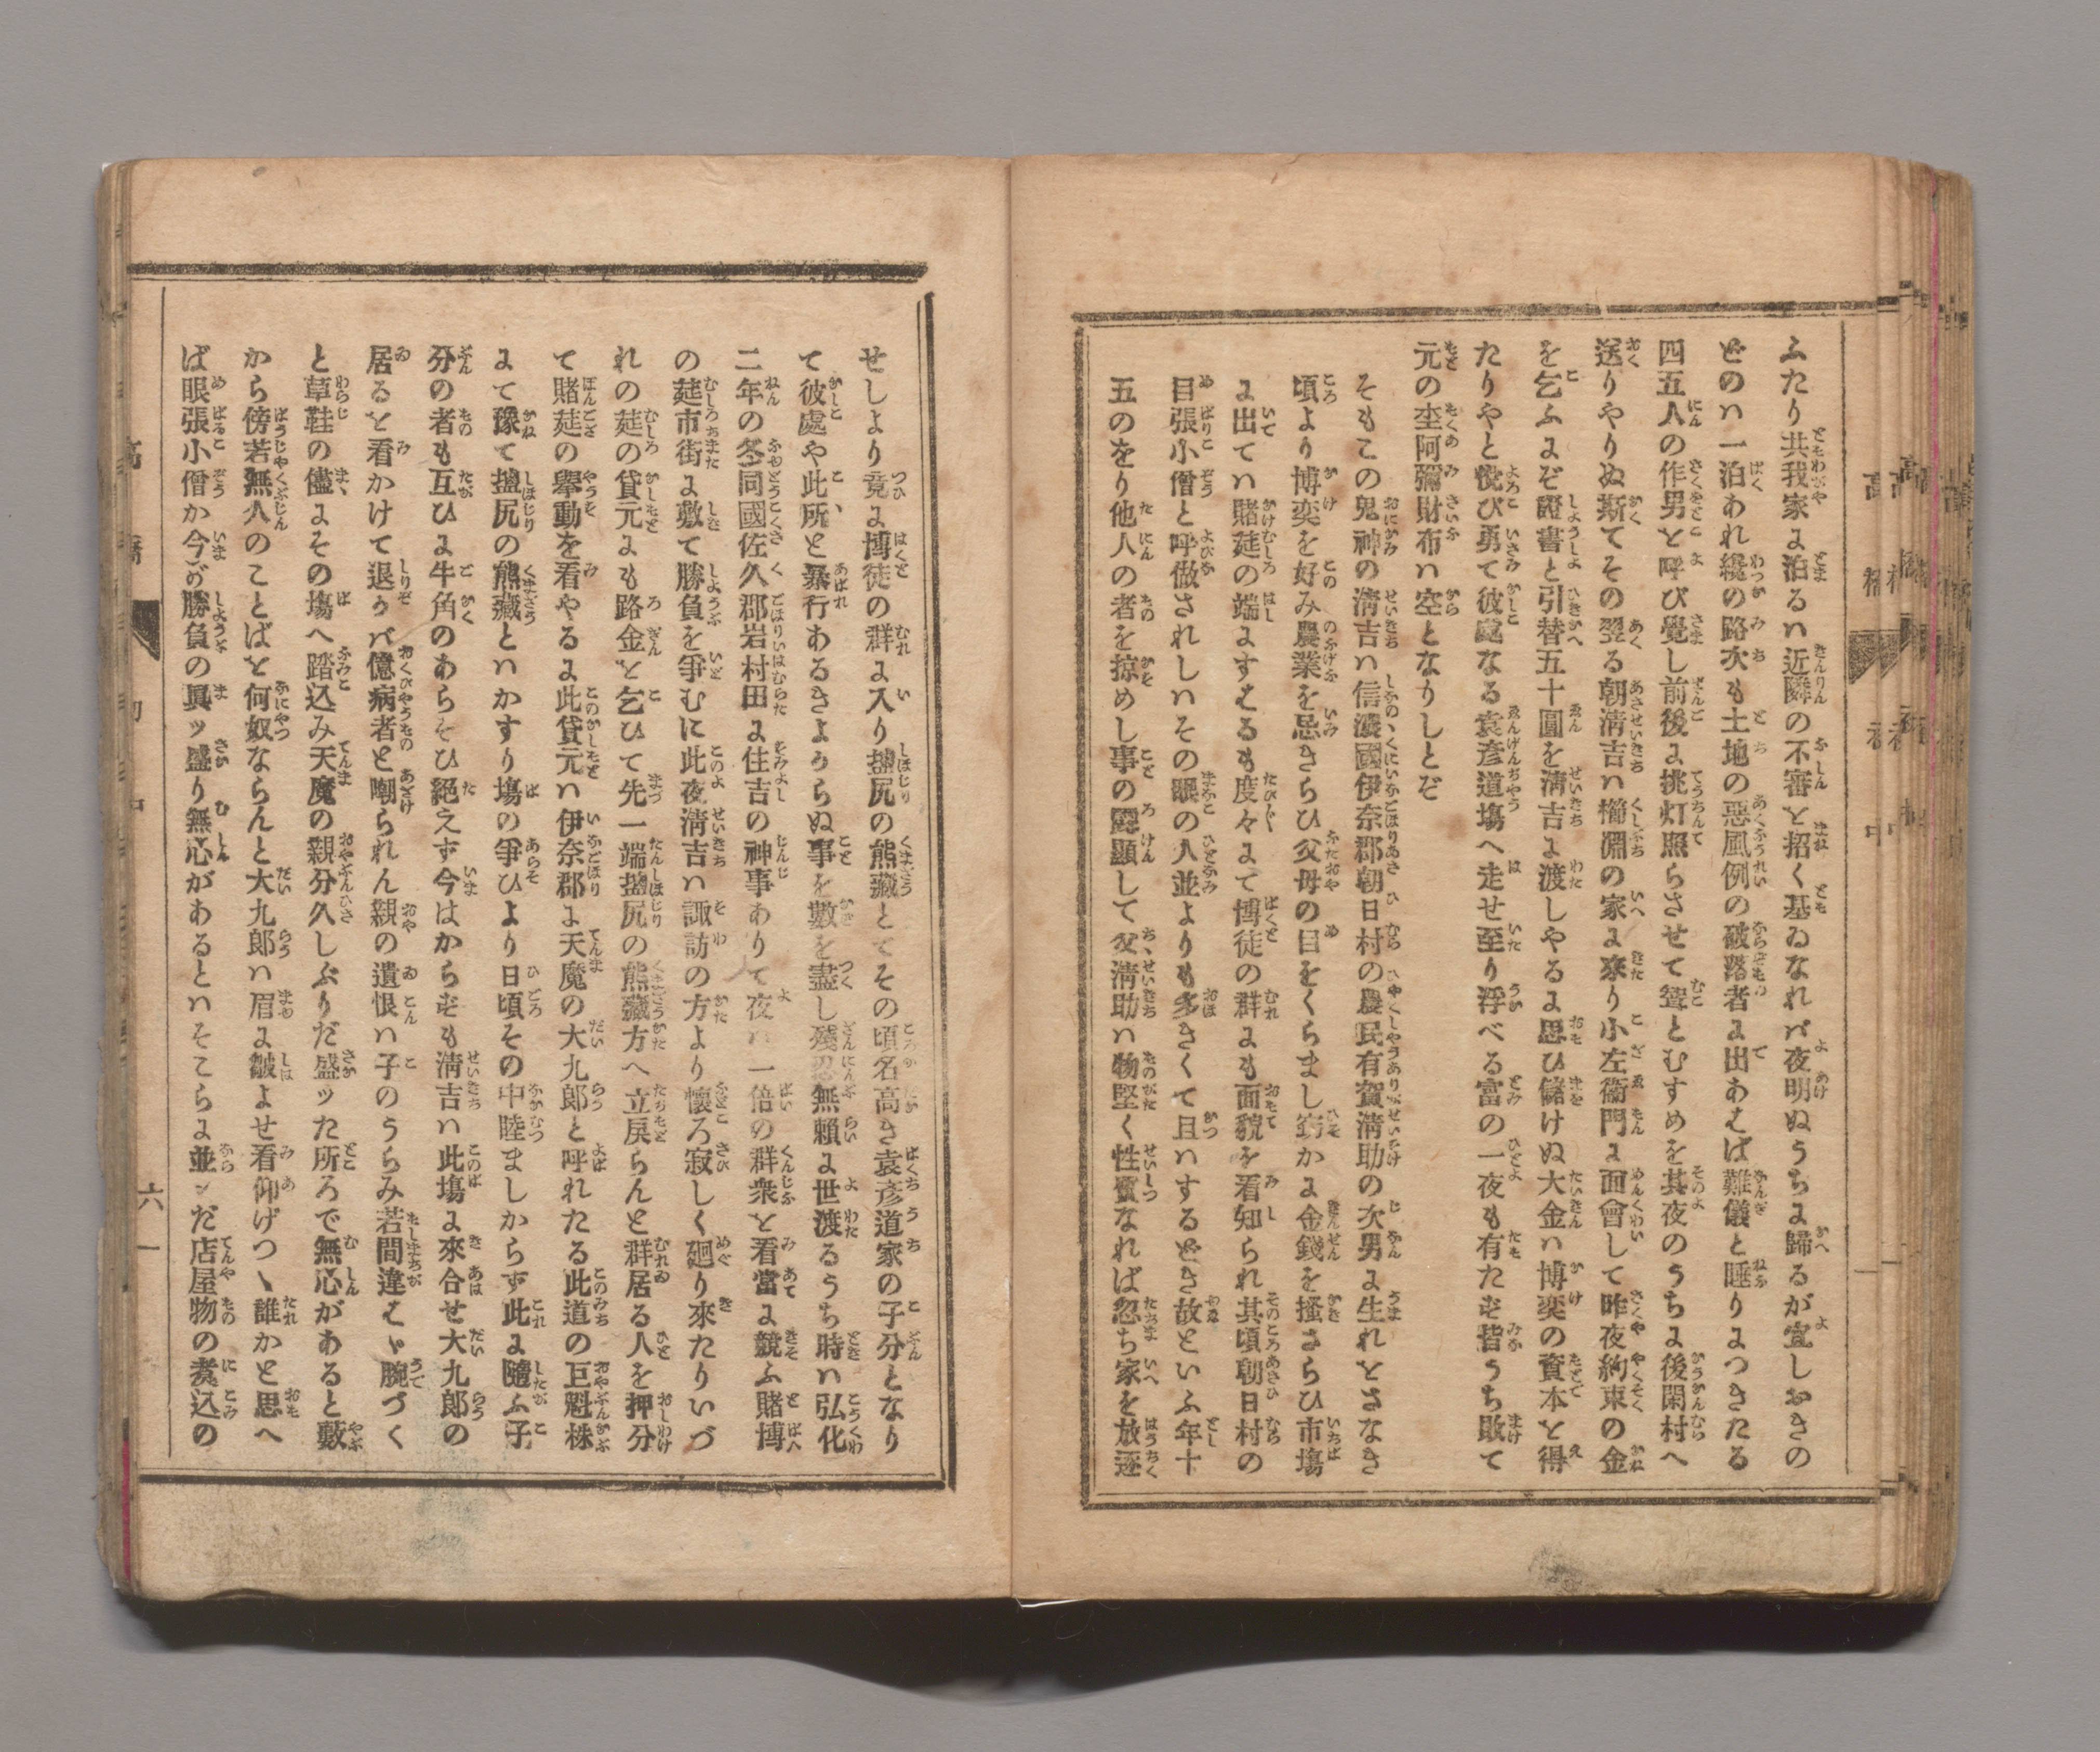 ふたり共我家に泊るハ近隣の不審と招く基ゐなれバ夜明ぬうちに歸るが宜しおきの
どのハ一泊あれ纔の路次も土地の惡風例の破落者に出あへば難儀と睡りにつきたる
四五人の作男と呼び覺し前後に挑灯照らさせて聟とむすめを其夜のうちに後閑村へ
送りやりぬ斯てその翌る朝淸吉ハ櫛淵の家に來り小左衞門に面會して昨夜約束の金
を乞ふにぞ證書と引替五十圓を淸吉に渡しやるに思ひ儲けぬ大金ハ博奕の資本と得
たりやと悅び勇て彼處なる袁彦道塲へ走せ至り浮べる富の一夜も有たず皆うち敗て
元の杢阿彌財布ハ空となりしとぞ
そもこの鬼神の淸吉ハ信濃國伊奈郡朝日村の農民有賀淸助の次男に生れをさなき
頃より博奕を好み農業を忌きらひ父母の目をくらまし竊かに金錢を搔さらひ市塲
に出てハ賭莚の端にすへるも度々にて博徒の群にも面貌を看知られ其頃朝日村の
目張小僧と呼做されしハその眼の人並よりも多きくて且ハするどき故といふ年十
五のをり他人の者を掠めし事の露顯して父淸助ハ物堅く性質なれば忽ち家を放逐
せしより竟に博徒の群に入り鹽尻の熊藏とてその頃名高き袁彦道家の子分となり
て彼處や此所と暴行あるきよからぬ事を數を盡し殘忍無賴に世渡るうち時ハ弘化
二年の冬同國佐久郡岩村田に住吉の神事ありて夜ハ一倍の群衆と看當に競ふ賭博
の莚市街に敷て勝負を爭むに此夜淸吉ハ諏訪の方より懷ろ寂しく廻り來たりいづ
れの莚の貸元にも路金と乞ひて先一端鹽尻の熊藏方へ立戾らんと群居る人を押分
て賭莚の擧動を看やるに此貸元ハ伊奈郡に天魔の大九郎と呼れたる此道の巨魁株
にて豫て鹽尻の熊藏とハかすり塲の爭ひより日頃その中睦ましからず此に隨ふ子
分の者も互ひに牛角のあらそひ絕えず今はからずも淸吉ハ此塲に來合せ大九郎の
居ると看かけて退かバ億病者と嘲られん親の遺恨ハ子のうらみ若間違へバ腕づく
と草鞋の儘にその塲へ踏込み天魔の親分久しぶりだ盛ッた所ろで無心があると藪
から傍若無人のことばと何奴ならんと大九郎ハ眉に皺よせ看仰げつゝ誰かと思へ
ば眼張小僧か今が勝負の眞ッ盛り無心があるとハそこらに並ンだ店屋物の煑込の
高橋
初
中
六一